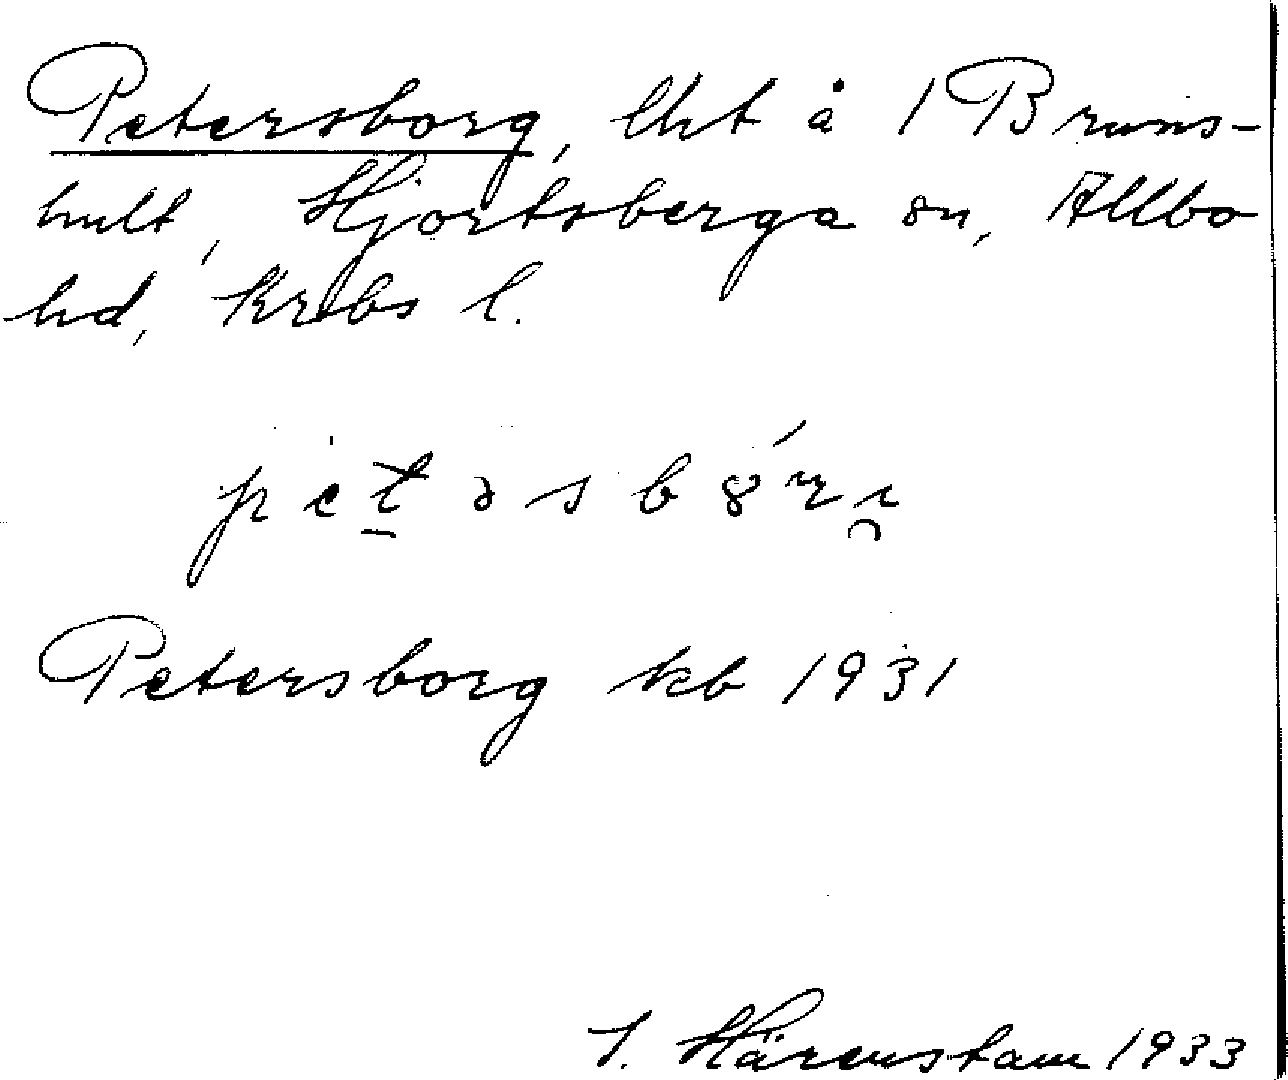 Petersborg, lht å 1 Bruns-
hult, Hjortsberga sn, Allbo
hd, Krbs l.
Petersborg kb 1931
I. Härenstam 1933